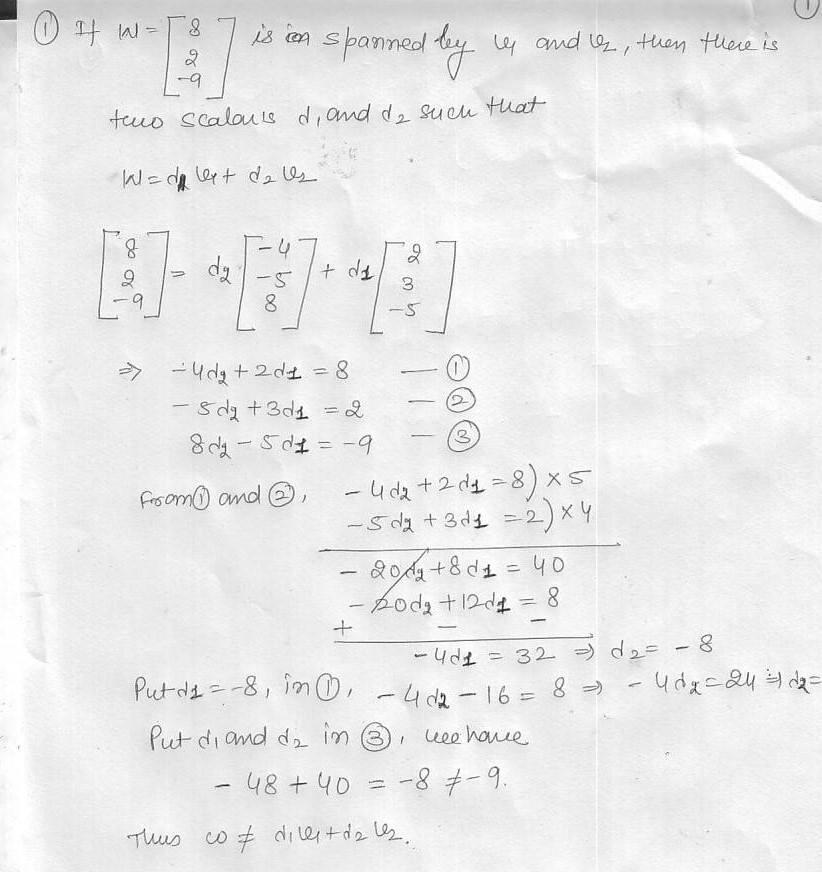 ①
① If W = [8 2 -9] is in spanned by v1 and v2, then there is
two scalars d1 and d2 such that
W = d1 v1 + d2 v2
[8 2 -9] = d2 [-4 -5 8] + d1 [2 3 -5]
⇒ -4d2 + 2d1 = 8 — ①
-5d2 + 3d1 = 2 — ②
8d2 - 5d1 = -9 — ③
from ① and ②, -4d2 + 2d1 = 8) × 5
-5d2 + 3d1 = 2) × 4
- 20d2 + 8d1 = 40
- 20d2 + 12d1 = 8
+ - -
-4d1 = 32 ⇒ d2 = -8
Put d1 = -8, in ①, -4d2 - 16 = 8 ⇒ -4d2 = 24 ⇒ d2 =
Put d1 and d2 in ③, we have
- 48 + 40 = -8 ≠ -9.
Thus w ≠ d1v1 + d2v2.